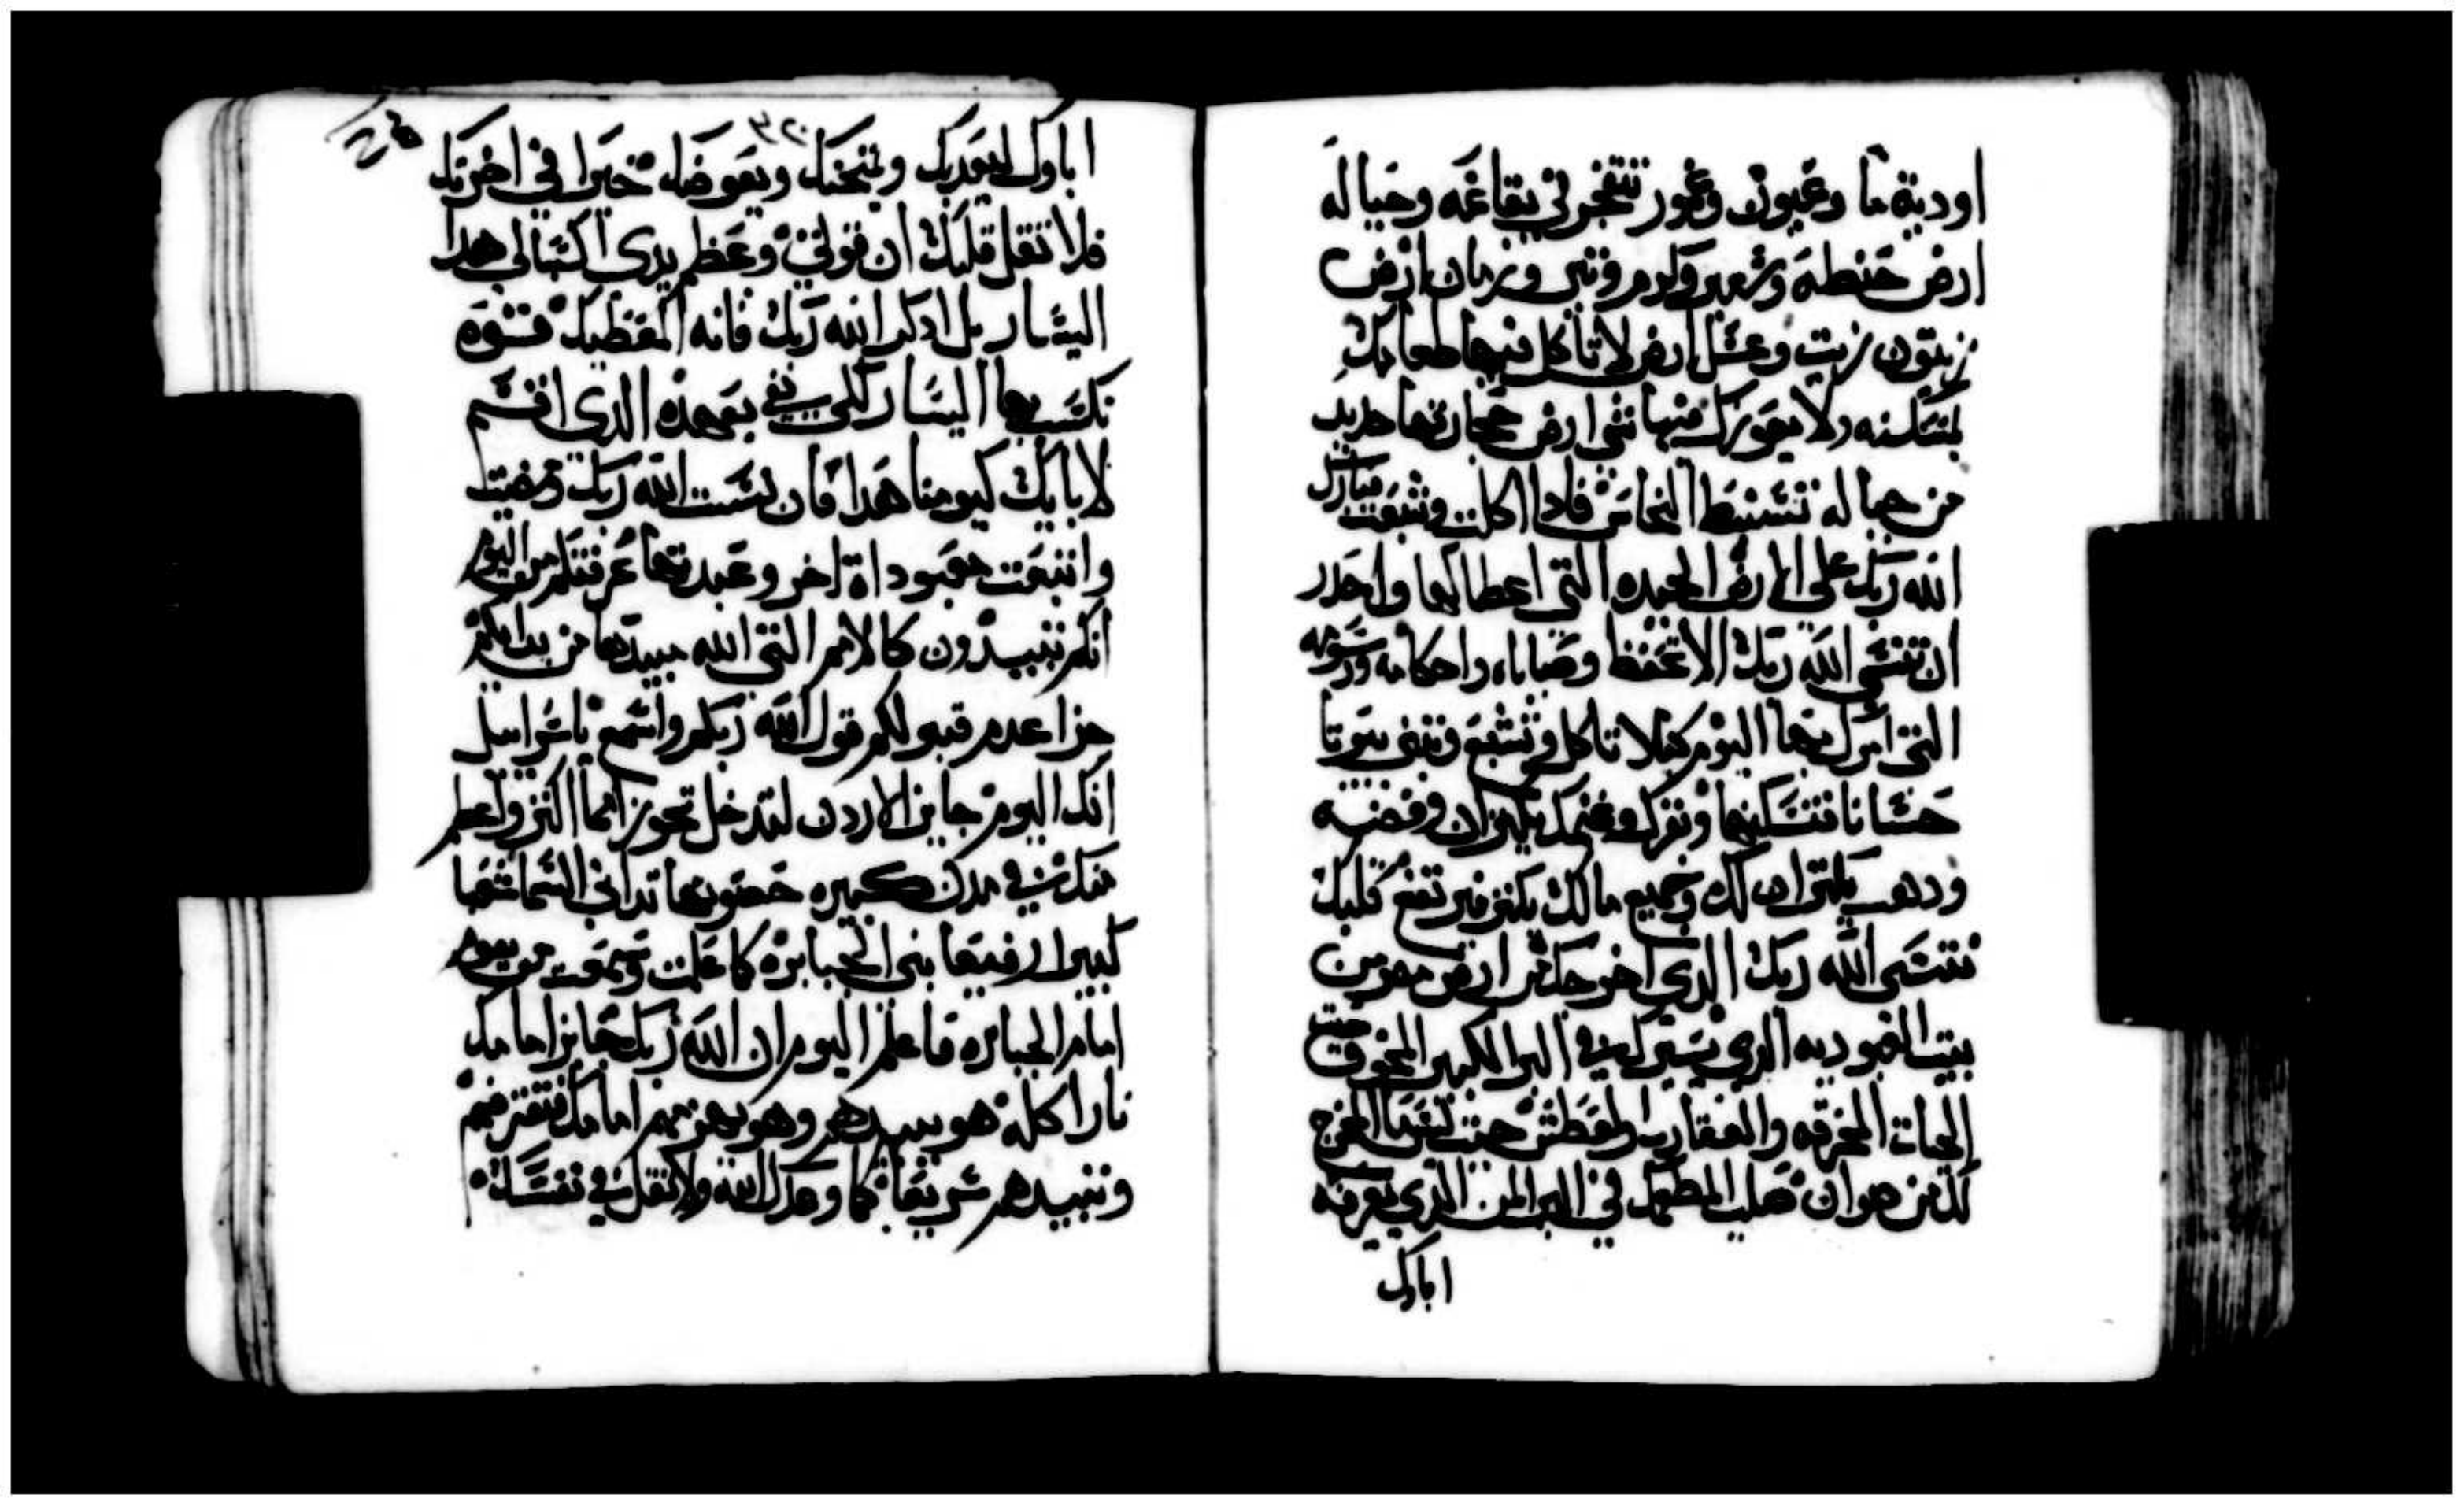 اودية ما وعيون وغور تتفجر في بقاعه وجباله
ارض حنطه وشعير وكرم وتين ورمان ارض
زيتون زيت وعسل ارض لا تأكل فيها طعامك
بمسكنه ولا يعوزك منها شي ارض حجارتها حديد
من جباله تستنبط النحاس فاذا اكلت وشبعت تبارك
الله ربك على الارض الجيده التي اعطاكها واحدر
ان تنسى الله ربك الا تحفظ وصاياه واحكامه ورسومه
التي امرك بها اليوم كيلا تاكل وتشبع وتبني بيوتا
حسانا فتسكنها وبقرك وغنمك يكتران وفضه
ودهب يكتران لك وجميع مالك يكتر فيرتفع قلبك
فتنسى الله ربك الذي اخرجك من ارض مصر من
بيت العبوديه الذي سيرك في البر الكبير المخوف حيث
الحيات المحرقه والعقارب والعطش حيث ليس ما المخرج
لك من صوان صلب المطعمك في البر المن الذي لم يعرفه
اباوك
اباوك ليعديك ويمتحنك ويعوضك خيرا في اخرتك
فلا تقل قلبك ان قوتي وعظم يدي اكسبالي هدا
اليسار بل ادكر الله ربك فانه المعطيك قوة
تكسب بها اليسار لكي يفي بعهده الذي اقسم
لابايك كيومنا هدا فان نسيت الله ربك ومضيت
واتبعت معبوداة اخر وعبدتها عرفتكم من اليوم
انكم تبيدون كالامم التي الله مبيدها من بين ايديكم
جزا عدم قبولكم قول الله ربكم واسمع ياسراييل
انك اليوم جايز الاردن لتدخل تحوز امما اكتر واعظم
منك في مدن كبيره حصونها تداني السما شعبا
كبيرا رفيعا بني الجبابره كما علمت وسمعت من يقوم
امام الجبابره فاعلم اليوم ان الله ربك جايز امامك
نارا اكله هو يبيدهم وهو يهزمهم امامك فتقرضهم
وتبيدهم سريعا كما وعدك الله ولا تقل في نفسك